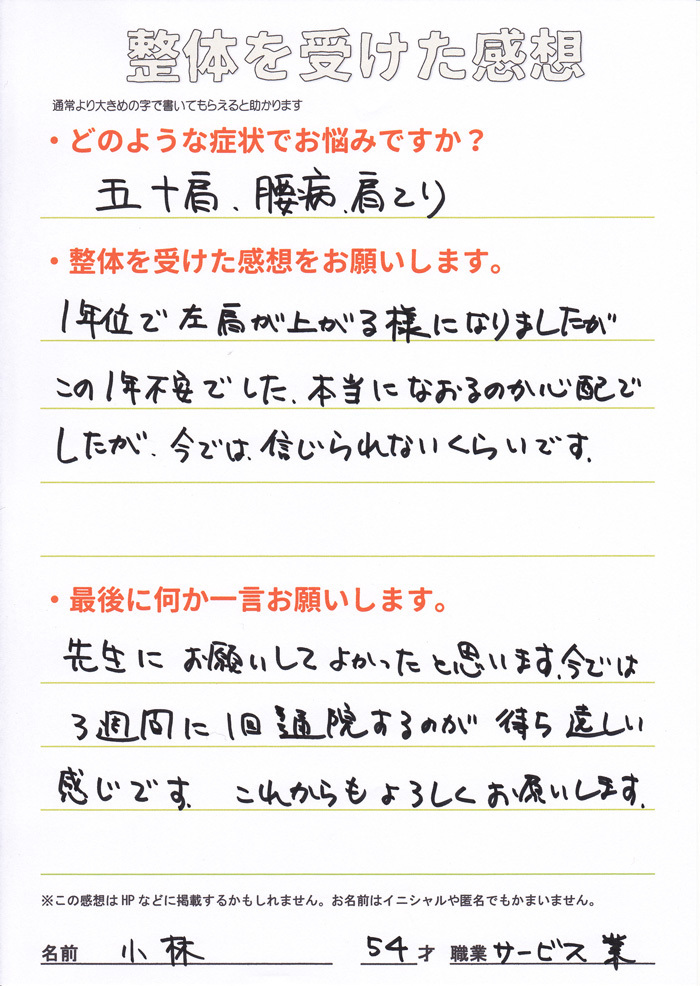 整体を受けた感想
通常より大きめの字で書いてもらえると助かります
・どのような症状でお悩みですか？
五十肩、腰病、肩こり
・整体を受けた感想をお願いします。
1年位で左肩が上がる様になりましたが
この1年不安でした、本当になおるのか心配で
したが、今では、信じられないくらいです。
・最後に何か一言お願いします。
先生にお願いしてよかったと思います。今では
3週間に1回通院するのが待ち遠しい
感じです。これからもよろしくお願いします。
※この感想はHPなどに掲載するかもしれません。お名前はイニシャルや匿名でもかまいません。
名前 小林 54才 職業 サービス業